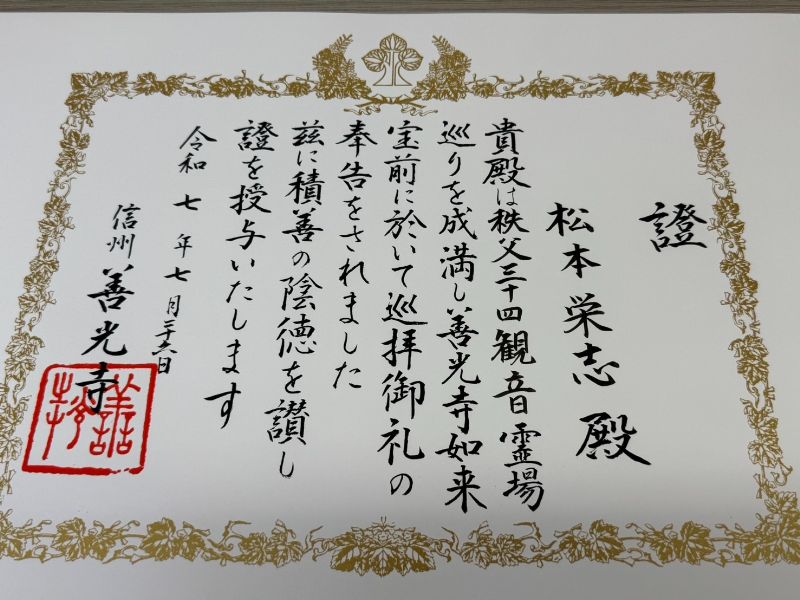 證
松本栄志殿
貴殿は秩父三十四観音霊場
巡りを成満し善光寺如来
宝前に於いて巡拝御礼の
奉告をされました
茲に積善の陰徳を讃し
證を授与いたします
令和七年七月二十六日
信州善光寺